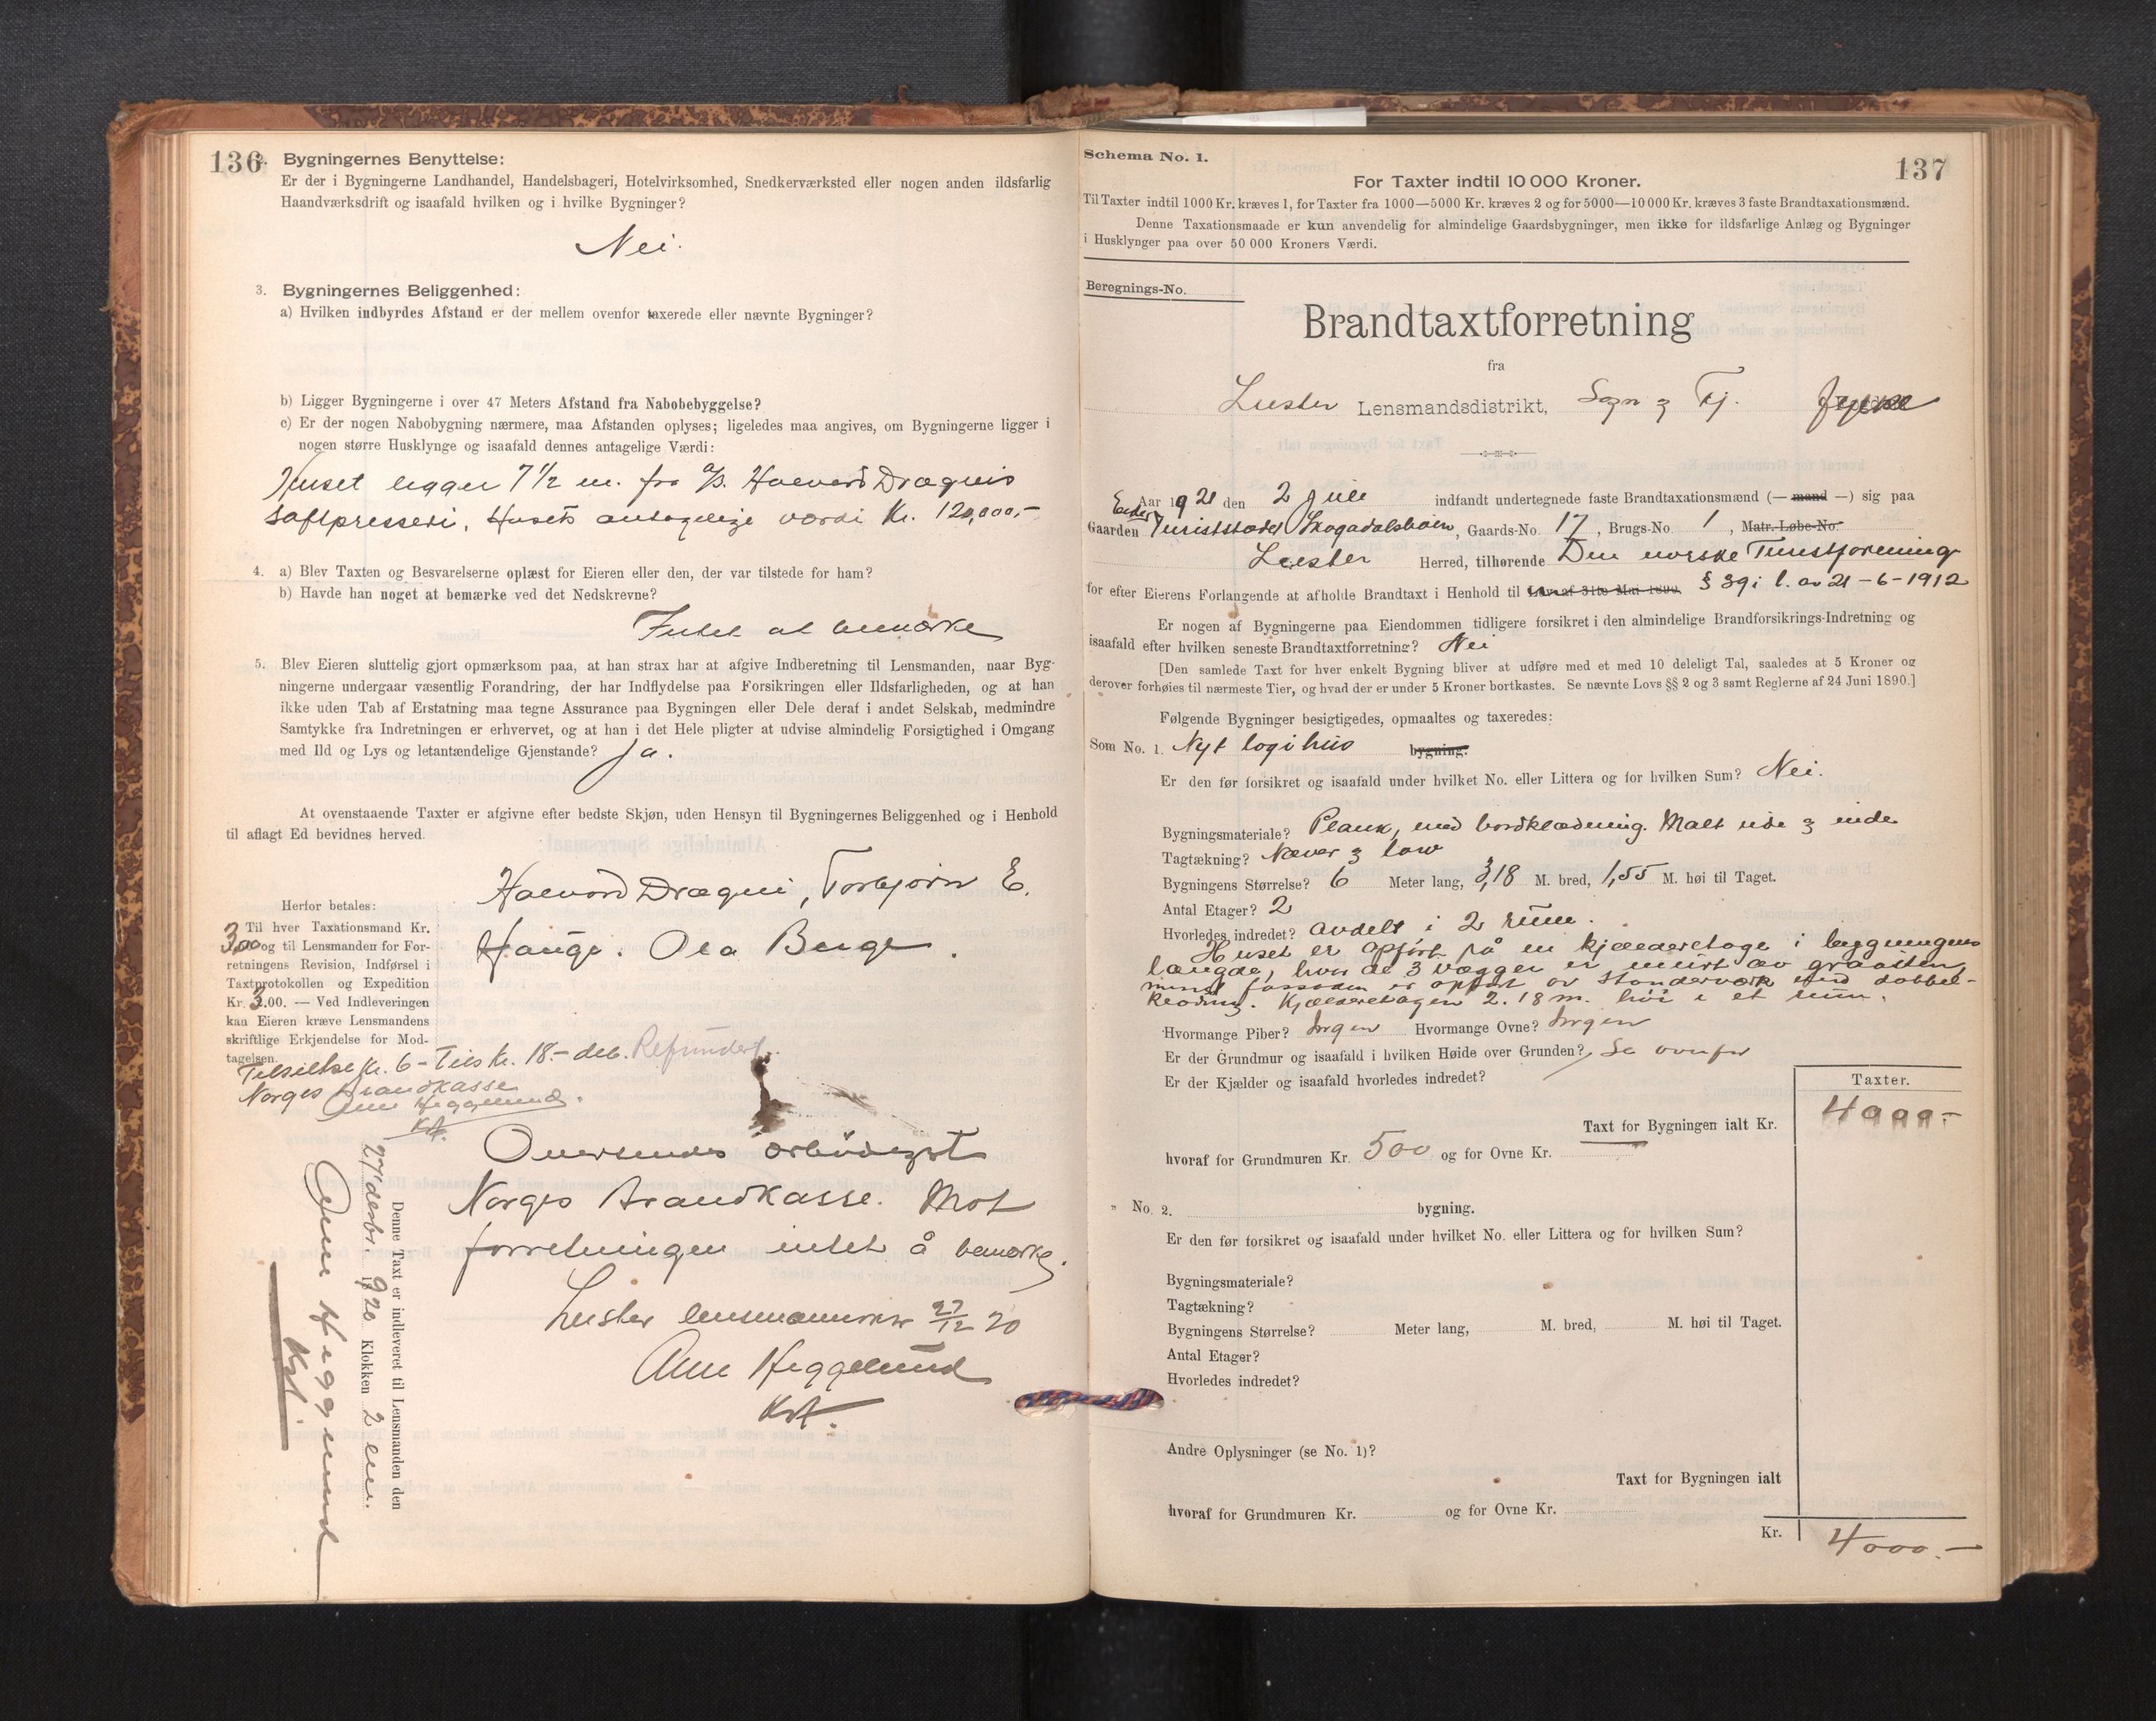 136
2. Bygningernes Benyttelse:
Er der i Bygningerne Landhandel, Handelsbageri, Hotelvirksomhed, Snedkerværksted eller nogen anden ildsfarlig
Haandværksdrift og isaafald hvilken og i hvilke Bygninger?
Nei.
3. Bygningernes Beliggenhed:
a) Hvilken indbyrdes Afstand er der mellem ovenfor taxerede eller nævnte Bygninger?
b) Ligger Bygningerne i over 47 Meters Afstand fra Nabobebyggelse?
c) Er der nogen Nabobygning nærmere, maa Afstanden oplyses; ligeledes maa angives, om Bygningerne ligger i
nogen større Husklynge og isaafald dennes antagelige Værdi:
Huset ligger 7 1/2 m. fra A/S. Halvard Drægnis
saftpresseri. Husets antagelige værdi Kr. 120,000,-
4. a) Blev Taxten og Besvarelserne oplæst for Eieren eller den, der var tilstede for ham?
b) Havde han noget at bemærke ved det Nedskrevne?
Intet at bemærke
5. Blev Eieren sluttelig gjort opmærksom paa, at han strax har at afgive Indberetning til Lensmanden, naar Byg-
ningerne undergaar væsentlig Forandring, der har Indflydelse paa Forsikringen eller Ildsfarligheden, og at han
ikke uden Tab af Erstatning maa tegne Assurance paa Bygningen eller Dele deraf i andet Selskab, medmindre
Samtykke fra Indretningen er erhvervet, og at han i det Hele pligter at udvise almindelig Forsigtighed i Omgang
med Ild og Lys og letantændelige Gjenstande? Ja.
At ovenstaaende Taxter er afgivne efter bedste Skjøn, uden Hensyn til Bygningernes Beliggenhed og i Henhold
til aflagt Ed bevidnes herved.
Halvard Drægni, Torbjørn E.
Hauge. Ola Berge.
Herfor betales:
Til hver Taxationsmand Kr.
3,00 og til Lensmanden for For-
retningens Revision, Indførsel i
Taxtprotokollen og Expedition
Kr. 3.00. — Ved Indleveringen
kan Eieren kræve Lensmandens
skriftlige Erkjendelse for Mod-
tagelsen.
Kr. 6 - Kr. 18.- Refundert.
Norges Brandkasse
Heggelund.
Kst.
Denne Taxt er indleveret til Lensmanden den
27/desbr. 1920 Klokken 2 em.
Arne Heggelund
Kst.
Oversendes ærbödigst
Norges Brandkasse. Mot
forretningen intet å bemærke.
Luster lensmannskr 27/12 20
Arne Heggelund
Kst.
Schema No. 1.
137
For Taxter indtil 10 000 Kroner.
Til Taxter indtil 1000 Kr. kræves 1, for Taxter fra 1000—5000 Kr. kræves 2 og for 5000—10000 Kr. kræves 3 faste Brandtaxationsmænd.
Denne Taxationsmaade er kun anvendelig for almindelige Gaardsbygninger, men ikke for ildsfarlige Anlæg og Bygninger
i Husklynger paa over 50 000 Kroners Værdi.
Beregnings-No.
Brandtaxtforretning
fra
Luster Lensmandsdistrikt, Sogn & Fj. fylke
Aar 1921 den 2 juli indfandt undertegnede faste Brandtaxationsmænd (— mand —) sig paa
Gaarden Turiststedet Skogadalsbøen, Gaards-No. 17, Brugs-No 1, Matr.-Løbe-No.
Luster Herred, tilhørende Den norske Turistforening
for efter Eierens Forlangende at afholde Brandtaxt i Henhold til Lov af 31te Mai 1890. § 39 i l. av 21-6-1912
Er nogen af Bygningerne paa Eiendommen tidligere forsikret i den almindelige Brandforsikrings-Indretning og
isaafald efter hvilken seneste Brandtaxtforretning? Nei
[Den samlede Taxt for hver enkelt Bygning bliver at udføre med et med 10 deleligt Tal, saaledes at 5 Kroner og
derover forhøies til nærmeste Tier, og hvad der er under 5 Kroner bortkastes. Se nævnte Lovs §§ 2 og 3 samt Reglerne af 24 Juni 1890.]
Følgende Bygninger besigtigedes, opmaaltes og taxeredes:
Som No. 1. Nyt logihus bygning.
Er den før forsikret og isaafald under hvilket No. eller Littera og for hvilken Sum? Nei.
Bygningsmateriale? Plank, med bordklædning. Malt ute & inde
Tagtækning? Næver & torv
Bygningens Størrelse? 6 Meter lang, 3,18 M. bred, 1,55 M. høi til Taget.
Antal Etager? 2
Hvorledes indredet? Avdelt i 2 rum.
Huset er opført på en kjælderetage i bygningens
længde, hvor de 3 vægger er muret av graasten
mens fassaden er opført av standerværk med dobbel-
klædning. Kjælderetagen 2.18 m. høi i et rum.
Hvormange Piber? Ingen Hvormange Ovne? Ingen
Er der Grundmur og isaafald i hvilken Høide over Grunden? Se ovenfor
Er der Kjælder og isaafald hvorledes indredet?
Taxter.
Taxt for Bygningen ialt Kr. 4000-
hvoraf for Grundmuren Kr. 500 og for Ovne Kr.
" No. 2. bygning.
Er den før forsikret og isaafald under hvilket No. eller Littera og for hvilken Sum?
Bygningsmateriale?
Tagtækning?
Bygningens Størrelse? Meter lang, M. bred, M. høi til Taget.
Antal Etager?
Hvorledes indredet?
Andre Oplysninger (se No. 1)?
Taxt for Bygningen ialt
hvoraf for Grundmuren Kr. og for Ovne Kr.
Kr. 4000.-